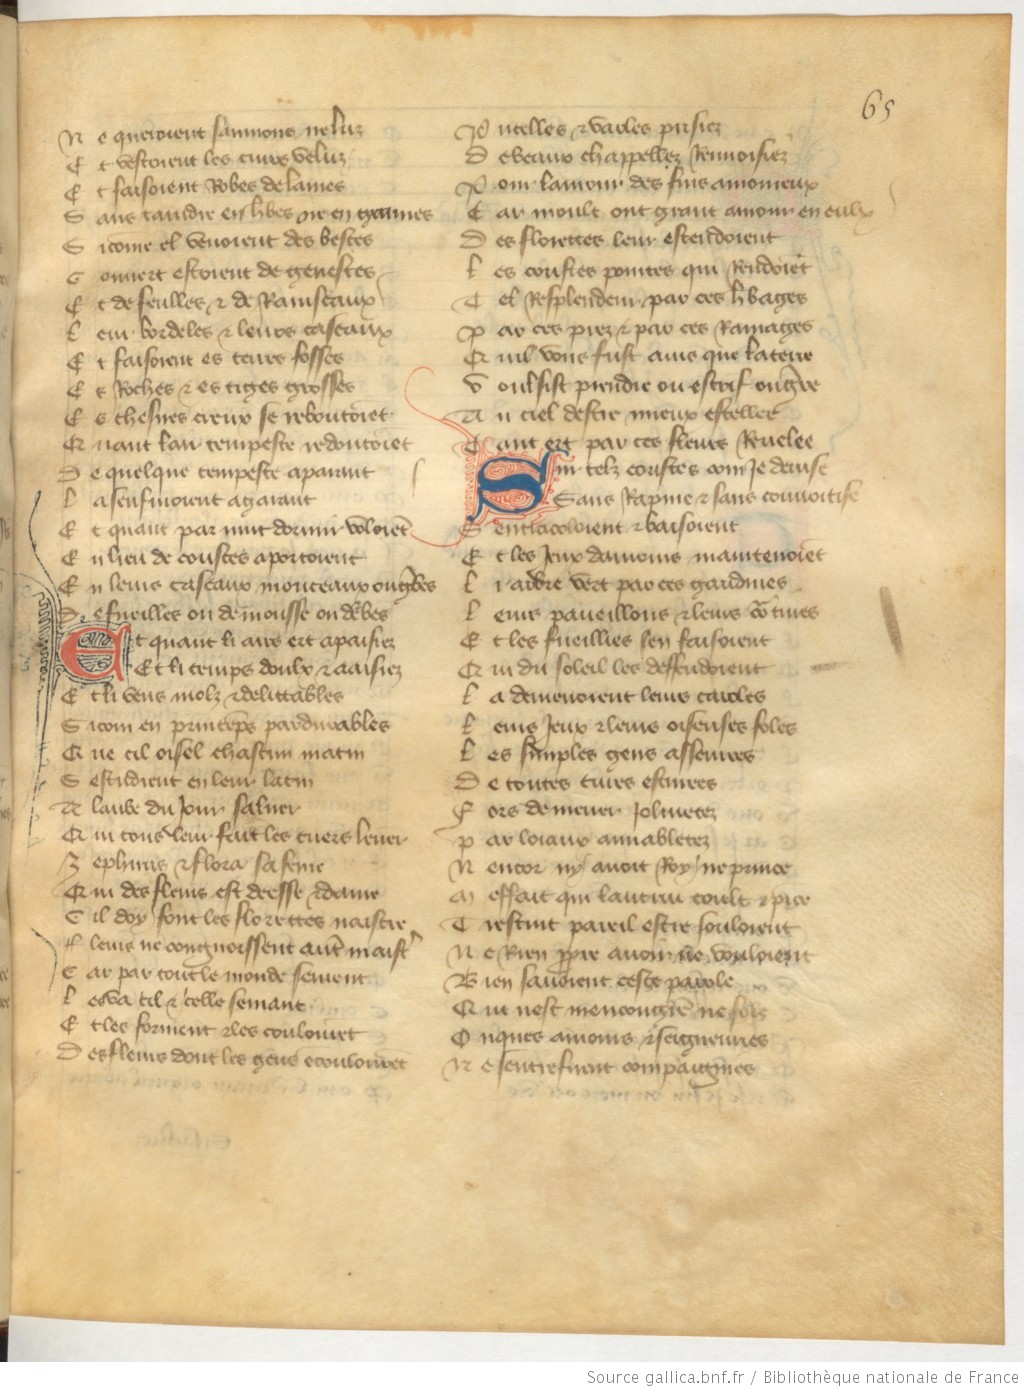 65
N e queroient saumons ne luz
E t vestoient les cuirs veluz
E t faisoient Robes de laines
S ans taindre en h'bes ne en graines
S icome el venoient des bestes
C ouuert estoient de genestes
E t de feulles & de Rainseaux
L eur bordeles & leurs caseaux
E t faisoient es terres fosses
E s Roches & es tiges grosses
E s chesnes creux se reboutoiet
Q uant lair tempeste redoutoiet
D e quelque tempeste aparant
L a senfuioient a garant
E t quant par nuit dormir voloiet
E n lieu de coustes aportoient
E n leurs caseaux monceaux ou g'bes
D e fueilles ou de mousse ou d'bes
E t quant li airs ert apaisiez
E t li temps doulx & aaisiez
E t li vens molz & delittables
S icom en printeps pardurables
Q ue cil oisel chascun matin
S estudient en leur latin
A laube du Jour saluer
Q ui tous leur fait les cuers leuer
Z ephirus & flora sa feme
Q ui des fleurs est deesse & dame
C il doy font les florettes naistre
F leurs ne congnoissent aut' maist'
C ar par tout le monde sement
L es va cil & celle semant
E t les forment & les coulouret
D es fleurs dont les gens ecoulouret
P ucelles & varles prisiez
D e beaux chappellez Renuoisiez
P our lamour des fins amoureux
C ar moult ont grant amour en eulx
D es florettes leur estendoient
L es coustes pointes qui Rendoiet
T el Resplendeur par ces h'bages
P ar ces prez & par ces Ramages
Q uil vous fust auis que la terre
V oulsist prendre ou estrif ou g're
A u ciel destre mieux estellee
T ant ert par ces fleurs Reuelee
S ur telz coustes com Je deuise
Sans Rapine & sans couuoitise
S entracoloient & baisoient
E t les Jeux damours maintenoiet
L i arbre vert par ces gardines
L eurs paueillons & leurs co'tines
E t les fueillies len faisoient
Q ui du soleil les deffendoient
L a demenoient leurs caroles
L eurs Jeux & leurs oiseuses foles
L es simples gens asseurees
D e toutes cures escurees
F ors de mener Joliuetez
P ar loiaux amiabletez
N encor ny auoit Roy ne prince
M effait qui lautrui toult & pice
T restuit pareil estre souloient
N e Rien p'pre auoir ne vouloient
B ien sauoient ceste parole
Q ui nest mencongiere ne fole
O nques amours & seigneuries
N e sentrefirent compaignies